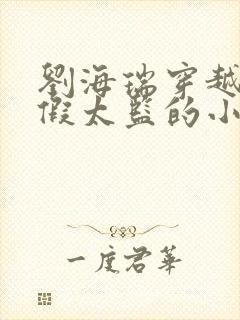 劉海瑞穿越
假太監的小
一度君華